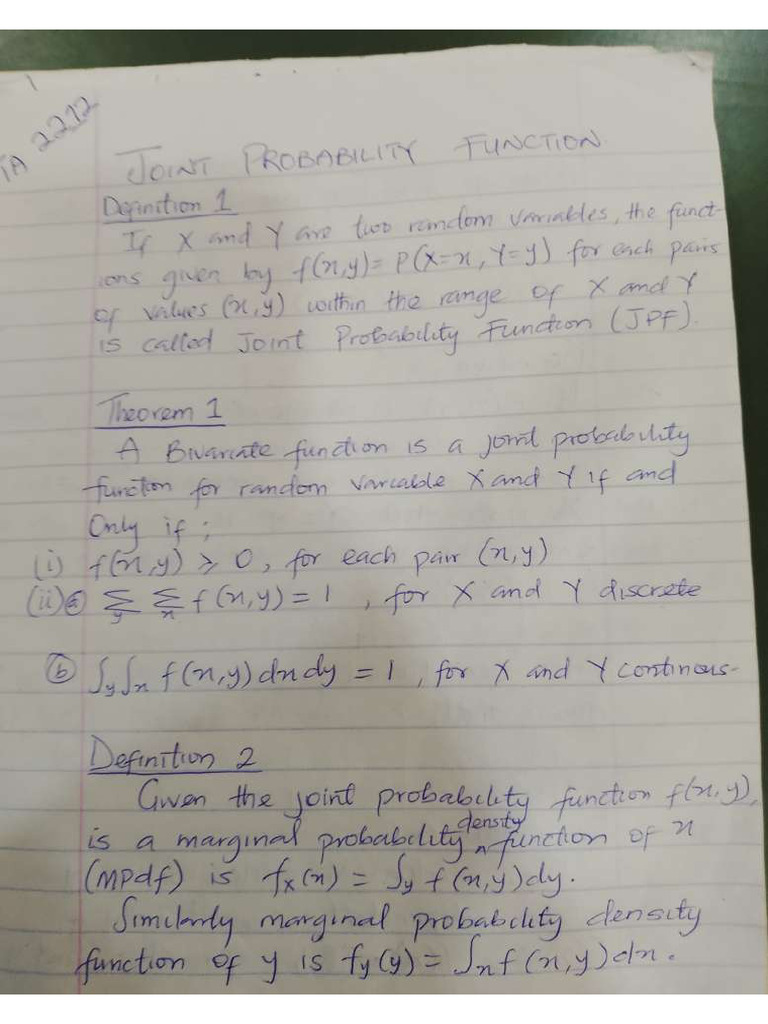 1
TA 2212
JOINT PROBABILITY FUNCTION.
Definition 1
If X and Y are two random variables, the funct-
ions given by f(x,y) = P(X=x, Y=y) for each pairs
of values (x,y) within the range of X and Y
is called Joint Probability Function (JPF).
Theorem 1
A Bivariate function is a joint probability
function for random variable X and Y if and
Only if;
(i) f(x,y) ≥ 0, for each pair (x,y)
(ii) ⓐ Σy Σx f(x,y) = 1, for X and Y discrete
ⓑ ∫y∫x f(x,y) dx dy = 1, for X and Y continous-
Definition 2
Given the joint probability function f(x,y),
is a marginal probability density function of x
(MPdf) is fx(x) = ∫y f(x,y)dy.
Similarly marginal probability density
function of y is fy(y) = ∫x f(x,y)dx.